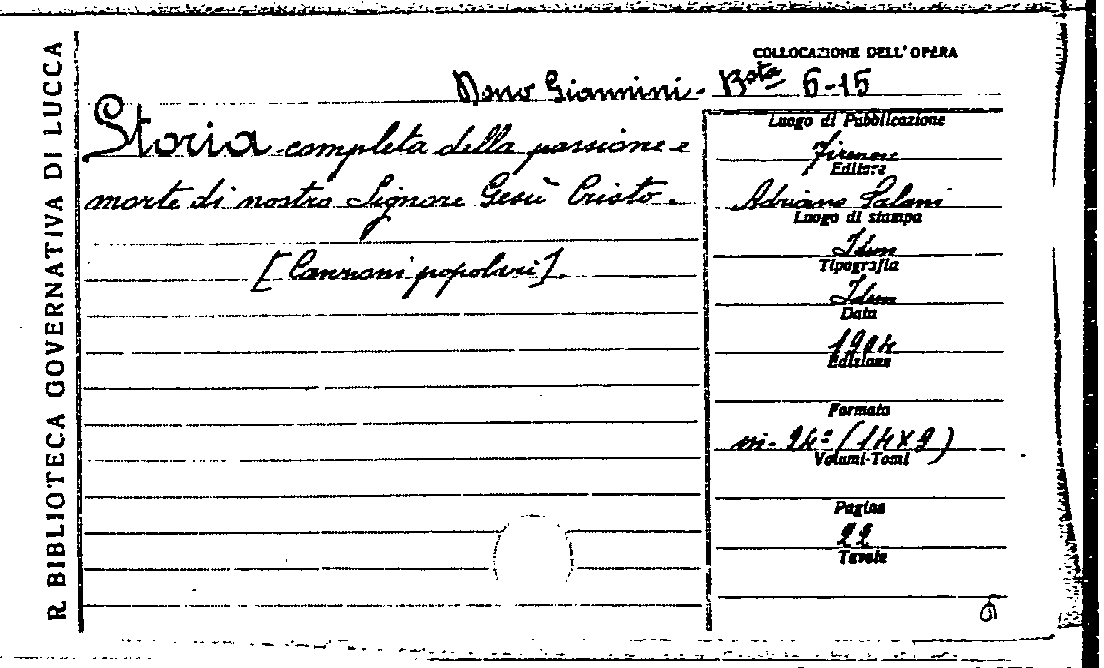 R. BIBLIOTECA GOVERNATIVA DI LUCCA
COLLOCAZIONE DELL'OPERA
Dono Giannini - Bsta 6-15
Storia completa della passione e
morte di nostro Signore Gesù Cristo.
[Canzoni popolari].
Luogo di Pubblicazione
Firenze
Editore
Adriano Salani
Luogo di stampa
Idem
Tipografia
Idem
Data
1904
Edizione
Formato
in-24º (14x9)
Volumi-Tomi
Pagine
22
Tavole